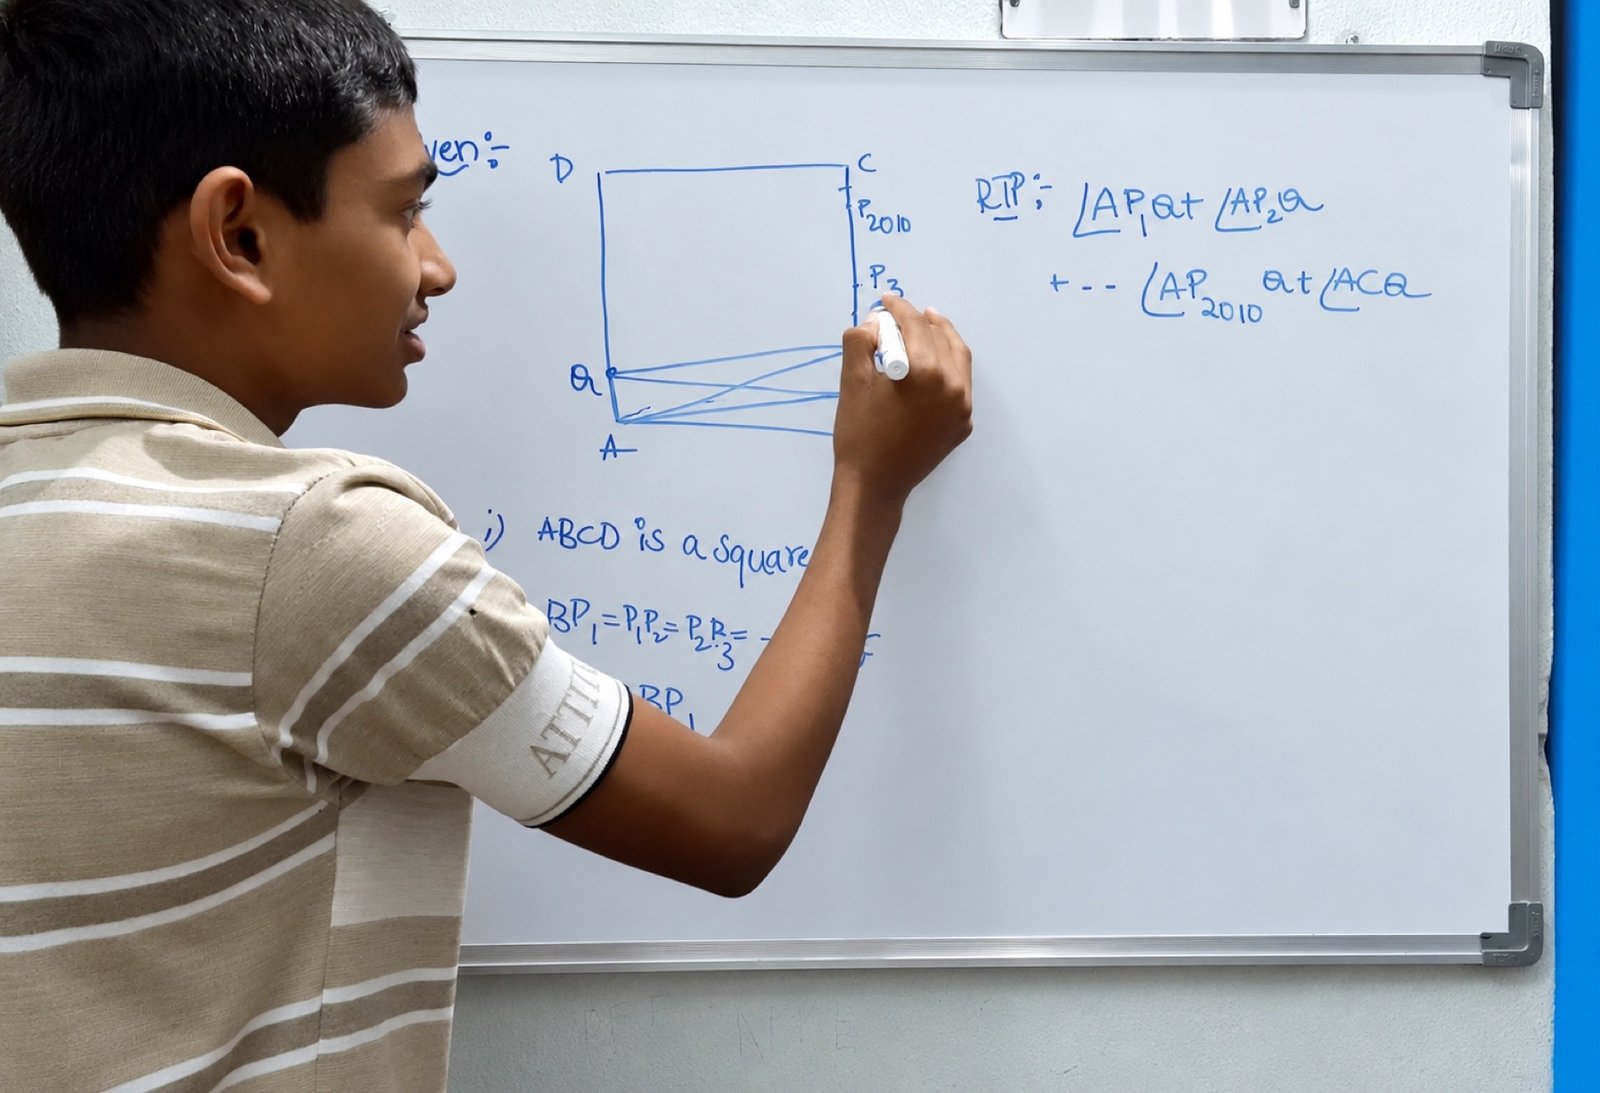 ven:-
D C
P2010
P3
Q
A
RTP:- ∠AP1Q+ ∠AP2Q
+-- ∠AP2010Q+∠ACQ
i) ABCD is a square
BP1=P1P2=P2P3=
BP1